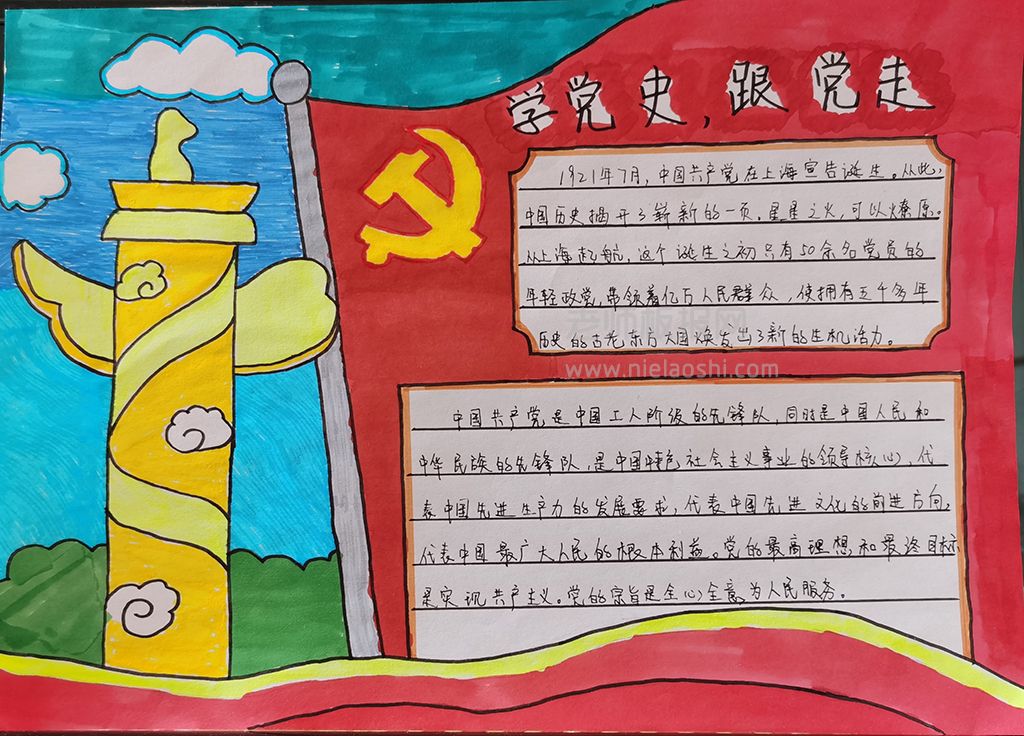 学党史,跟党走
1921年7月,中国共产党在上海宣告诞生。从此,
中国历史揭开了崭新的一页。星星之火,可以燎原。
从上海起航,这个诞生之初只有50余名党员的
年轻政党,带领着亿万人民群众,使拥有五千多年
历史的古老东方大国焕发出了新的生机活力。
老师板报网
www.nielaoshi.com
中国共产党是中国工人阶级的先锋队,同时是中国人民和
中华民族的先锋队,是中国特色社会主义事业的领导核心,代
表中国先进生产力的发展要求,代表中国先进文化的前进方向,
代表中国最广大人民的根本利益。党的最高理想和最终目标
是实现共产主义。党的宗旨是全心全意为人民服务。